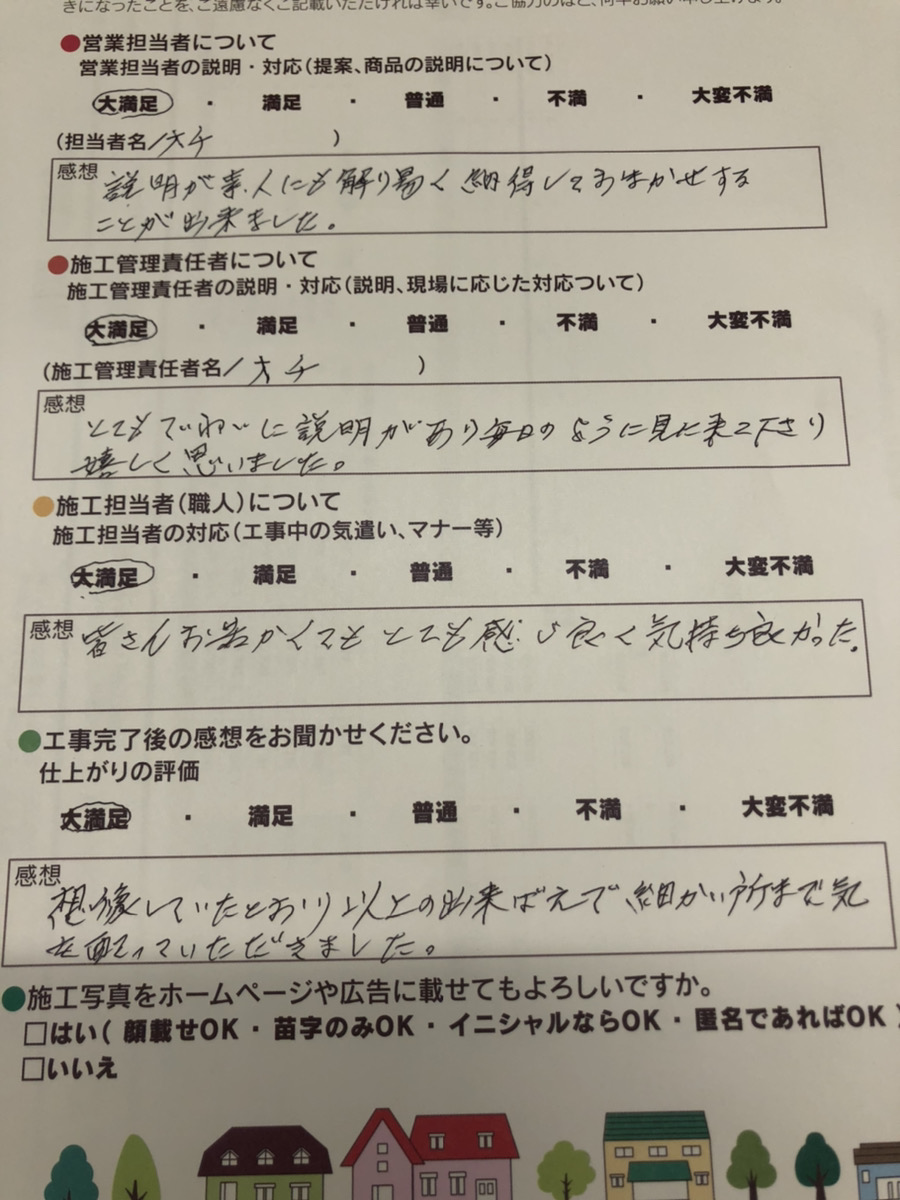 きになったことを、ご遠慮なくご記載いただければ幸いです。ご協力のほど、何卒お願い申し上げます。
●営業担当者について
営業担当者の説明・対応(提案、商品の説明について)
大満足 ・ 満足 ・ 普通 ・ 不満 ・ 大変不満
(担当者名/オチ )
感想
説明が素人にも解り易く納得しておまかせする
ことが出来ました。
●施工管理責任者について
施工管理責任者の説明・対応(説明、現場に応じた対応ついて)
大満足 ・ 満足 ・ 普通 ・ 不満 ・ 大変不満
(施工管理責任者名/オチ )
感想
とてもていねいに説明があり毎日のように見に来て下さり
嬉しく思いました。
●施工担当者(職人)について
施工担当者の対応(工事中の気遣い、マナー等)
大満足 ・ 満足 ・ 普通 ・ 不満 ・ 大変不満
感想
皆さんお若かくてもとても感じ良く気持ち良かった。
●工事完了後の感想をお聞かせください。
仕上がりの評価
大満足 ・ 満足 ・ 普通 ・ 不満 ・ 大変不満
感想
想像していたとおり以上の出来ばえで細かい所まで気
を配っていただきました。
●施工写真をホームページや広告に載せてもよろしいですか。
□はい( 顔載せOK ・ 苗字のみOK ・ イニシャルならOK ・ 匿名であればOK )
□いいえ